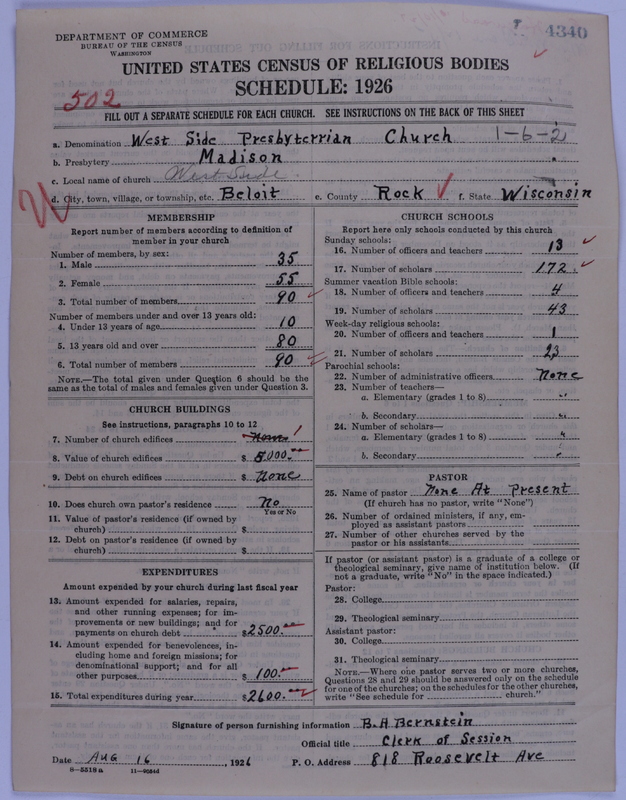 4340
DEPARTMENT OF COMMERCE
BUREAU OF THE CENSUS
WASHINGTON
UNITED STATES CENSUS OF RELIGIOUS BODIES
SCHEDULE: 1926
502
FILL OUT A SEPARATE SCHEDULE FOR EACH CHURCH. SEE INSTRUCTIONS ON THE BACK OF THIS SHEET
a. Denomination West Side Presbyterrian Church 1-6-2
b. Presbytery Madison
c. Local name of church West Side
d. City, town, village, or township, etc. Beloit e. County Rock f. State Wisconsin
MEMBERSHIP
Report number of members according to definition of
member in your church
Number of members, by sex:
1. Male 35
2. Female 55
3. Total number of members 90
Number of members under and over 13 years old:
4. Under 13 years of age 10
5. 13 years old and over 80
6. Total number of members 90
NOTE.—The total given under Question 6 should be the
same as the total of males and females given under Question 3.
CHURCH BUILDINGS
See instructions, paragraphs 10 to 12
7. Number of church edifices None 1
8. Value of church edifices $ 5000.00
9. Debt on church edifices $ None
10. Does church own pastor's residence No
Yes or No
11. Value of pastor's residence (if owned by
church) $
12. Debt on pastor's residence (if owned by
church) $
EXPENDITURES
Amount expended by your church during last fiscal year
13. Amount expended for salaries, repairs,
and other running expenses; for im-
provements or new buildings; and for
payments on church debt $ 2500.00
14. Amount expended for benevolences, in-
cluding home and foreign missions; for
denominational support; and for all
other purposes $ 100.00
15. Total expenditures during year $ 2600.00
CHURCH SCHOOLS
Report here only schools conducted by this church
Sunday schools:
16. Number of officers and teachers 13
17. Number of scholars 172.
Summer vacation Bible schools:
18. Number of officers and teachers 4
19. Number of scholars 43
Week-day religious schools:
20. Number of officers and teachers 1
21. Number of scholars 23
Parochial schools:
22. Number of administrative officers None
23. Number of teachers—
a. Elementary (grades 1 to 8) "
b. Secondary "
24. Number of scholars—
a. Elementary (grades 1 to 8) "
b. Secondary "
PASTOR
25. Name of pastor None At Present
(If church has no pastor, write "None")
26. Number of ordained ministers, if any, em-
ployed as assistant pastors
27. Number of other churches served by the
pastor or his assistants
If pastor (or assistant pastor) is a graduate of a college or
theological seminary, give name of institution below. (If
not a graduate, write "No" in the space indicated.)
Pastor:
28. College
29. Theological seminary
Assistant pastor:
30. College
31. Theological seminary
NOTE.—Where one pastor serves two or more churches,
Questions 28 and 29 should be answered only on the schedule
for one of the churches; on the schedules for the other churches,
write "See schedule for church."
Signature of person furnishing information B.A. Bernstein
Official title Clerk of Session
Date Aug 16, 1926 P. O. Address 818 Roosevelt Ave
8-5518a 11-9084d